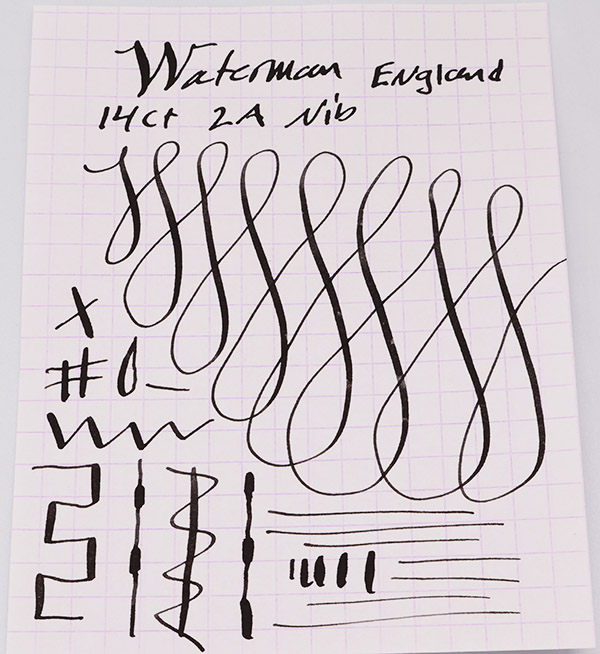 Waterman England
14ct 2A Nib
X
# 0 _